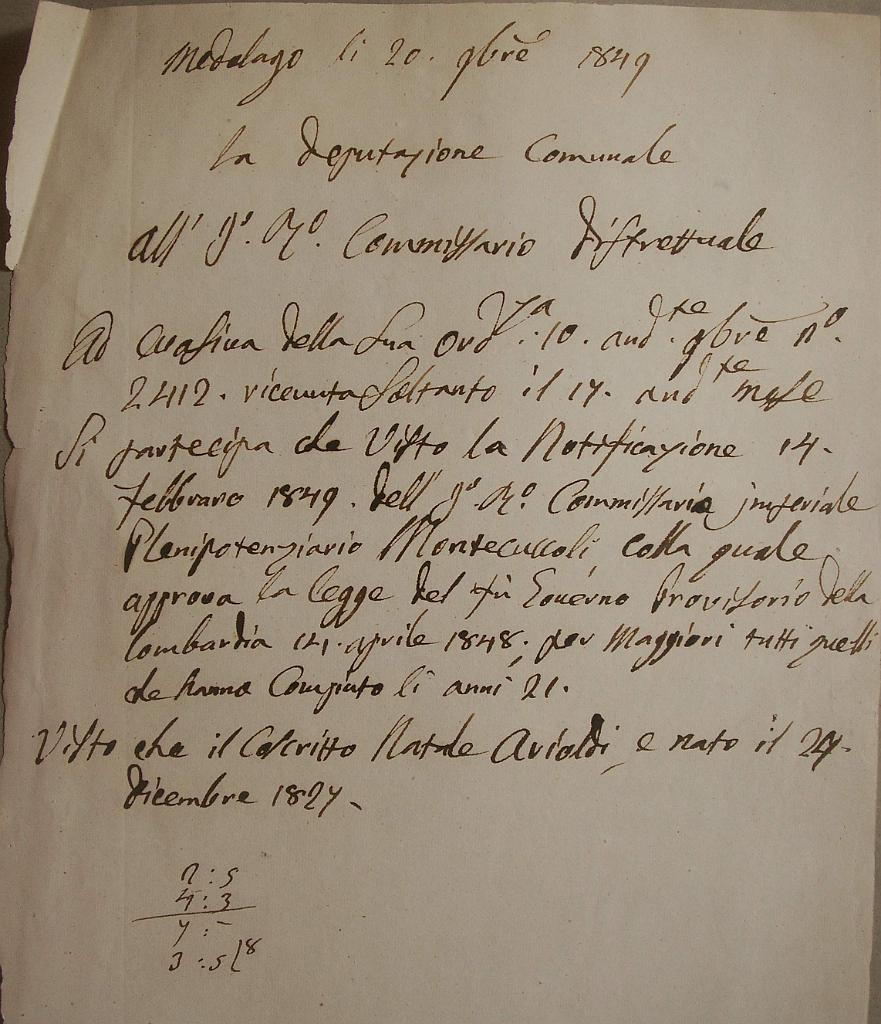 Medolago li 20. 9bre 1849
La Deputazione Comunale
all' I°. R°. Commissario Distrettuale
Ad evasiva della Sua Ord.za 10. and.te 9bre n°.
2412. ricevuta Soltanto il 17. and.te mese
Si partecipa che Visto la Notificazione 14.
febbraro 1849. dell' I°. R°. Commissario imperiale
Plenipotenziario Montecuccoli colla quale
approva la legge del fù Governo Provisorio della
Lombardia 14. aprile 1848. per Maggiori tutti quelli
che hanno Compiuto li anni 21.
Visto che il Coscritto Natale Arioldi, e nato il 27.
Dicembre 1827.
2:5
4:3
7:-
3:5 8